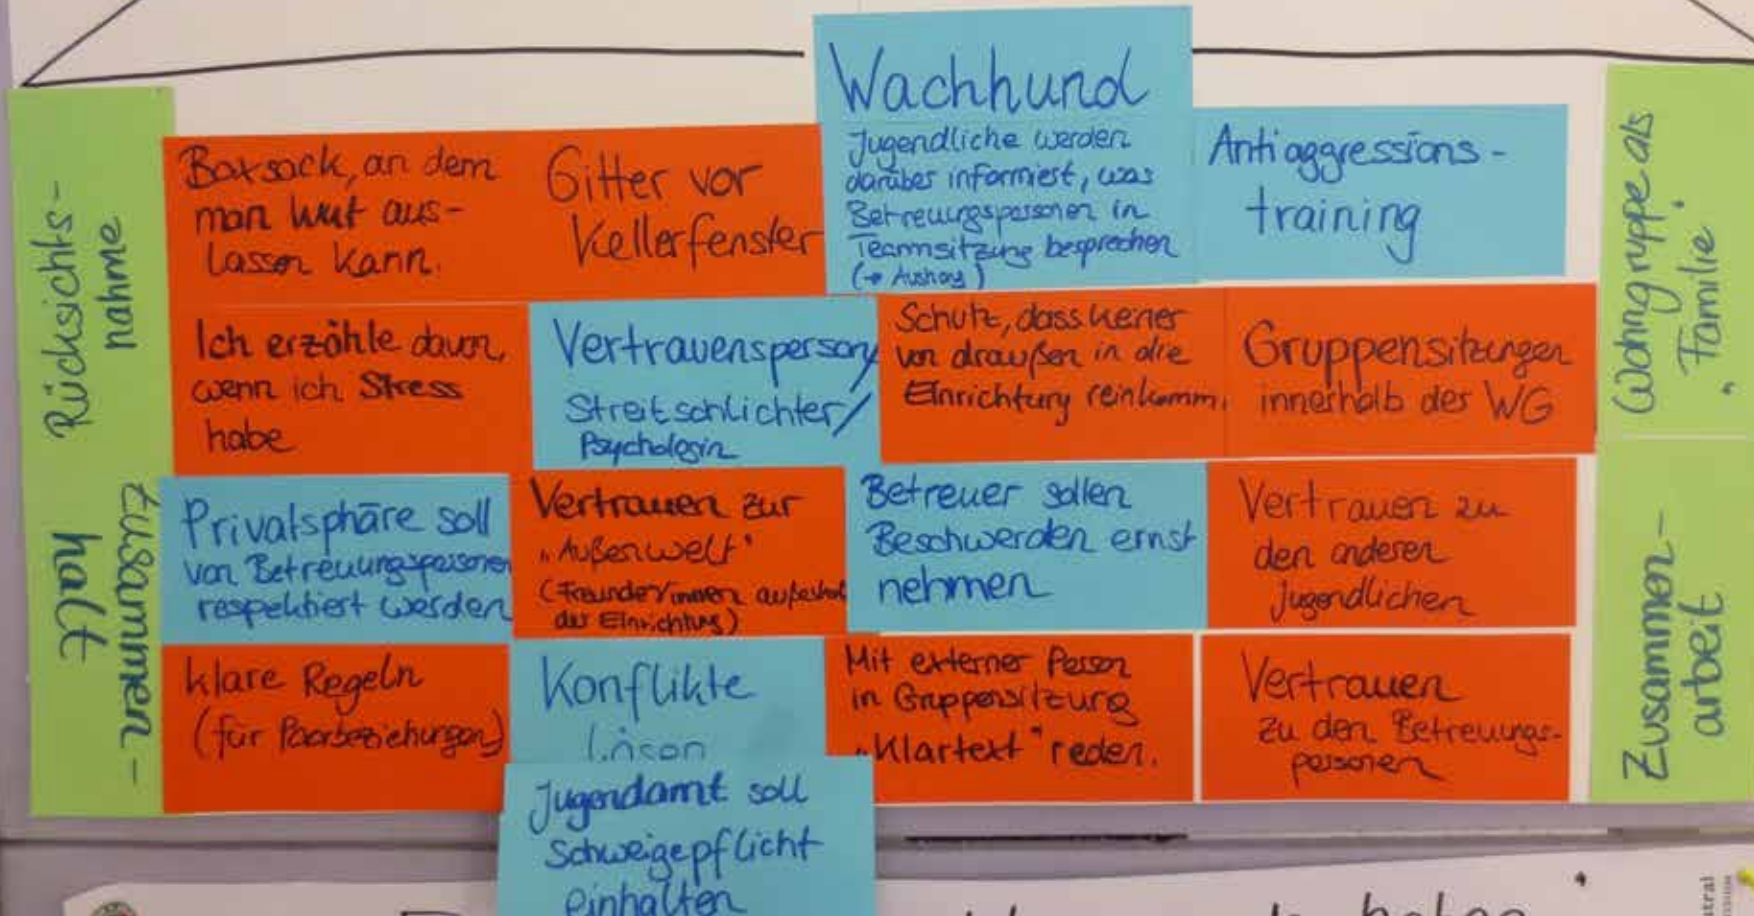 Rücksichts-
nahme
Zusammen-
halt
Boxsack, an dem
man Wut aus-
lassen kann.
Gitter vor
Kellerfenster
Wachhund
Jugendliche werden
darüber informiert, was
Betreuungspersonen in
Teamsitzung besprechen
(→ Aushang)
Antiaggressions-
training
Ich erzähle davon,
wenn ich Stress
habe
Vertrauensperson/
Streitschlichter/
Psychologin
Schutz, dass keiner
von draußen in die
Einrichtung reinkommt.
Gruppensitzungen
innerhalb der WG
Privatsphäre soll
von Betreuungspersonen
respektiert werden
Vertrauen zur
„Außenwelt"
(Freunde/innen außerhalb
der Einrichtung)
Betreuer sollen
Beschwerden ernst
nehmen
Vertrauen zu
den anderen
Jugendlichen
klare Regeln
(für Paarbeziehungen)
Konflikte
lösen
Mit externer Person
in Gruppensitzung
„Klartext" reden.
Vertrauen
zu den Betreuungs-
personen
Jugendamt soll
Schweigepflicht
einhalten
Wohngruppe als
„Familie"
Zusammen-
arbeit